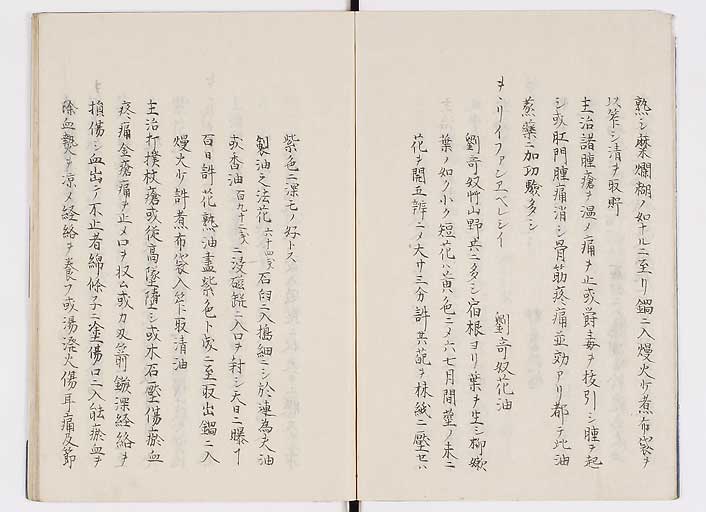 熟シ麋爛糊ノ如ナルニ至リ鍋ニ入熳火少煮布袋ヲ
以笮シ清ヲ取貯
主治諸腫瘡ヲ温メ痛ヲ止或欝毒ヲ拔引シ腫ヲ起
シ或肛門腫痛消シ骨筋疼痛並効アリ都テ此油
蒸藥ニ加功驗多シ
劉奇奴花油
ヲヽリイファンヱペレシイ
劉奇奴竹山野共ニ多シ宿根ヨリ葉ヲ生シ柳嫩
葉ノ如ク小ク短花ハ黄色ニメ六七月間莖ノ末ニ
花ヲ開五辨ニメ大サ三分許其葩ヲ林紙ニ壓セハ
紫色ニ深モノ好トス
製油之法花六十四戔石臼ニ入搗細ニシ於連為夫油
或香油百九十二戔ニ浸磁鋺ニ入口ヲ封シ天日ニ曝丁
百日許花熟油盡紫色ト成ニ至取出鍋ニ入
熳火少許煮布袋入笮ニ取清油
主治打撲杖瘡或従高墜墮シ或木石壓傷瘀血
疼痛金瘡痛ヲ止メ口ヲ収ム或カ刄箭鏃深経絡ヲ
損傷シ血出テ不止者綿ノ條子ニ塗傷口ニ入能瘀血ヲ
除血熱ヲ涼メ経絡ヲ養フ或湯溌火傷耳痛及節